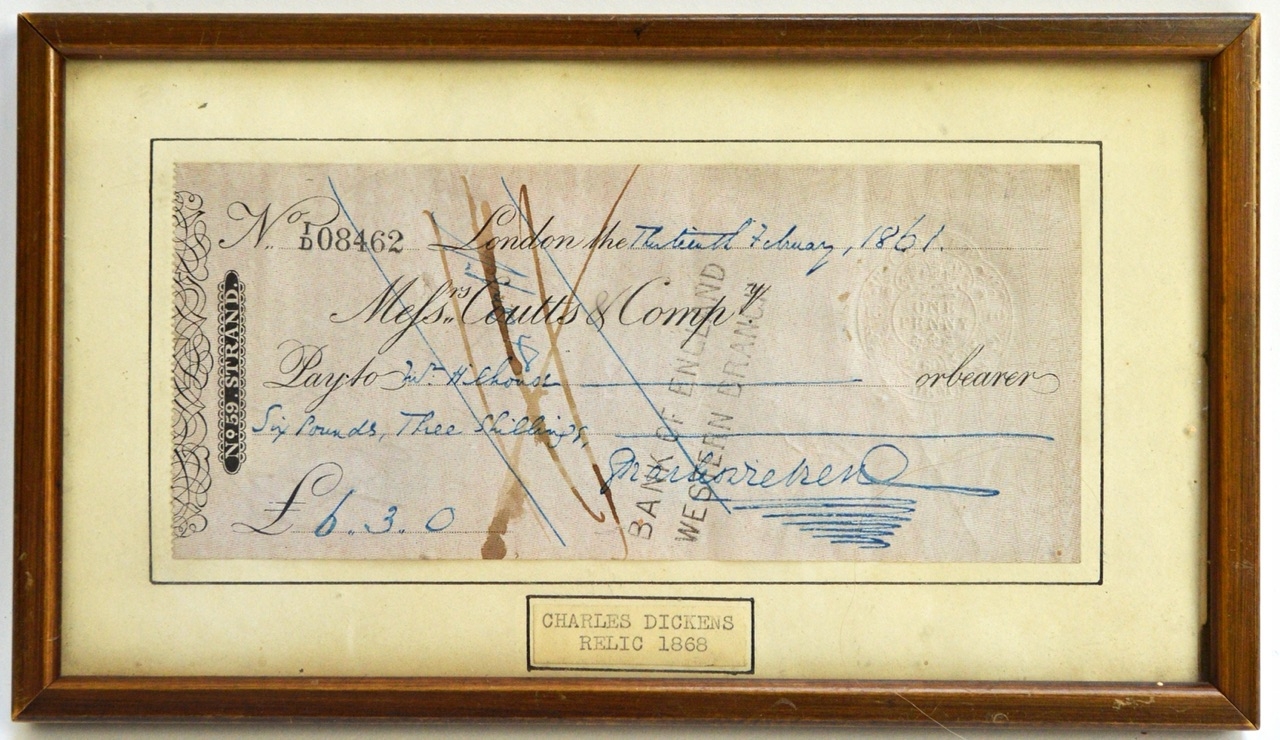 No. I/D 08462 London the Thirteenth February, 1861.
Messrs. Coutts & Compy.
Pay to or bearer
Six Pounds, Three Shillings,
Charles Dickens
£6.3.0
No 59. STRAND.
BANK OF ENGLAND
WESTERN BRANCH
ONE
PENNY
CHARLES DICKENS
RELIC 1868